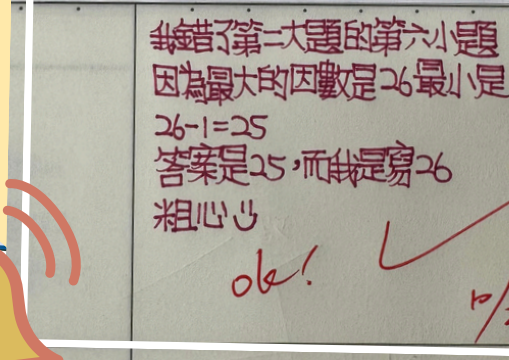 我錯了第二大題的第六小題
因為最大的因數是26最小是
26-1=25
答案是25,而我是寫26
粗心
ok!